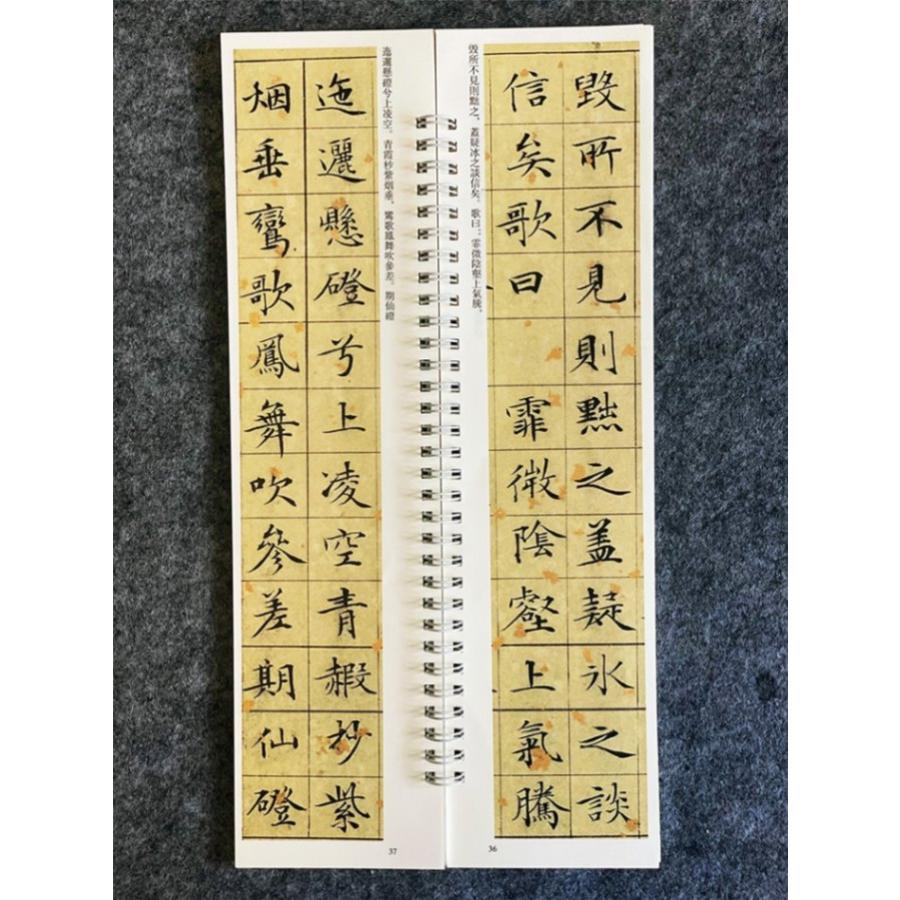 毀所不見則黜之盖疑氷之談
信矣歌曰 霏微陰壑上氣騰
毀所不見則黜之，蓋疑冰之談信矣。歌曰：霏微陰壑上氣騰，
36
迤邐懸磴兮上凌空。青霞杪紫烟垂，鸞歌鳳舞吹參差。期仙磴
迤邐懸磴兮上凌空青赮杪紫
烟垂鸞歌鳳舞吹參差期仙磴
37